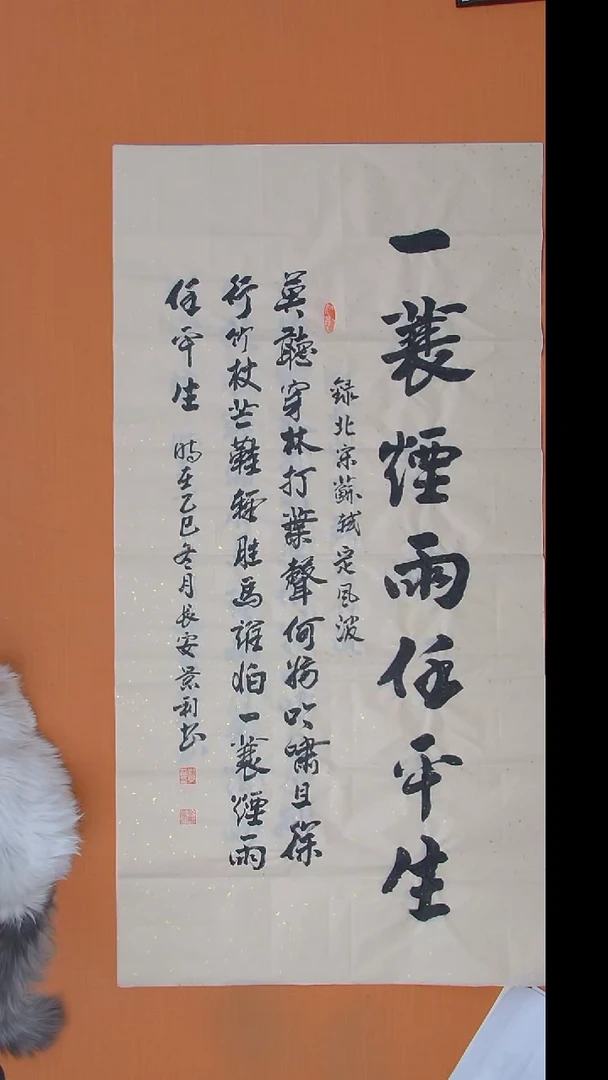 一蓑煙雨任平生
錄北宋蘇軾定風波
莫聽穿林打葉聲何妨吟嘯且徐
行竹杖芒鞋輕胜馬誰怕一蓑煙雨
任平生
時在乙巳冬月長安景利书